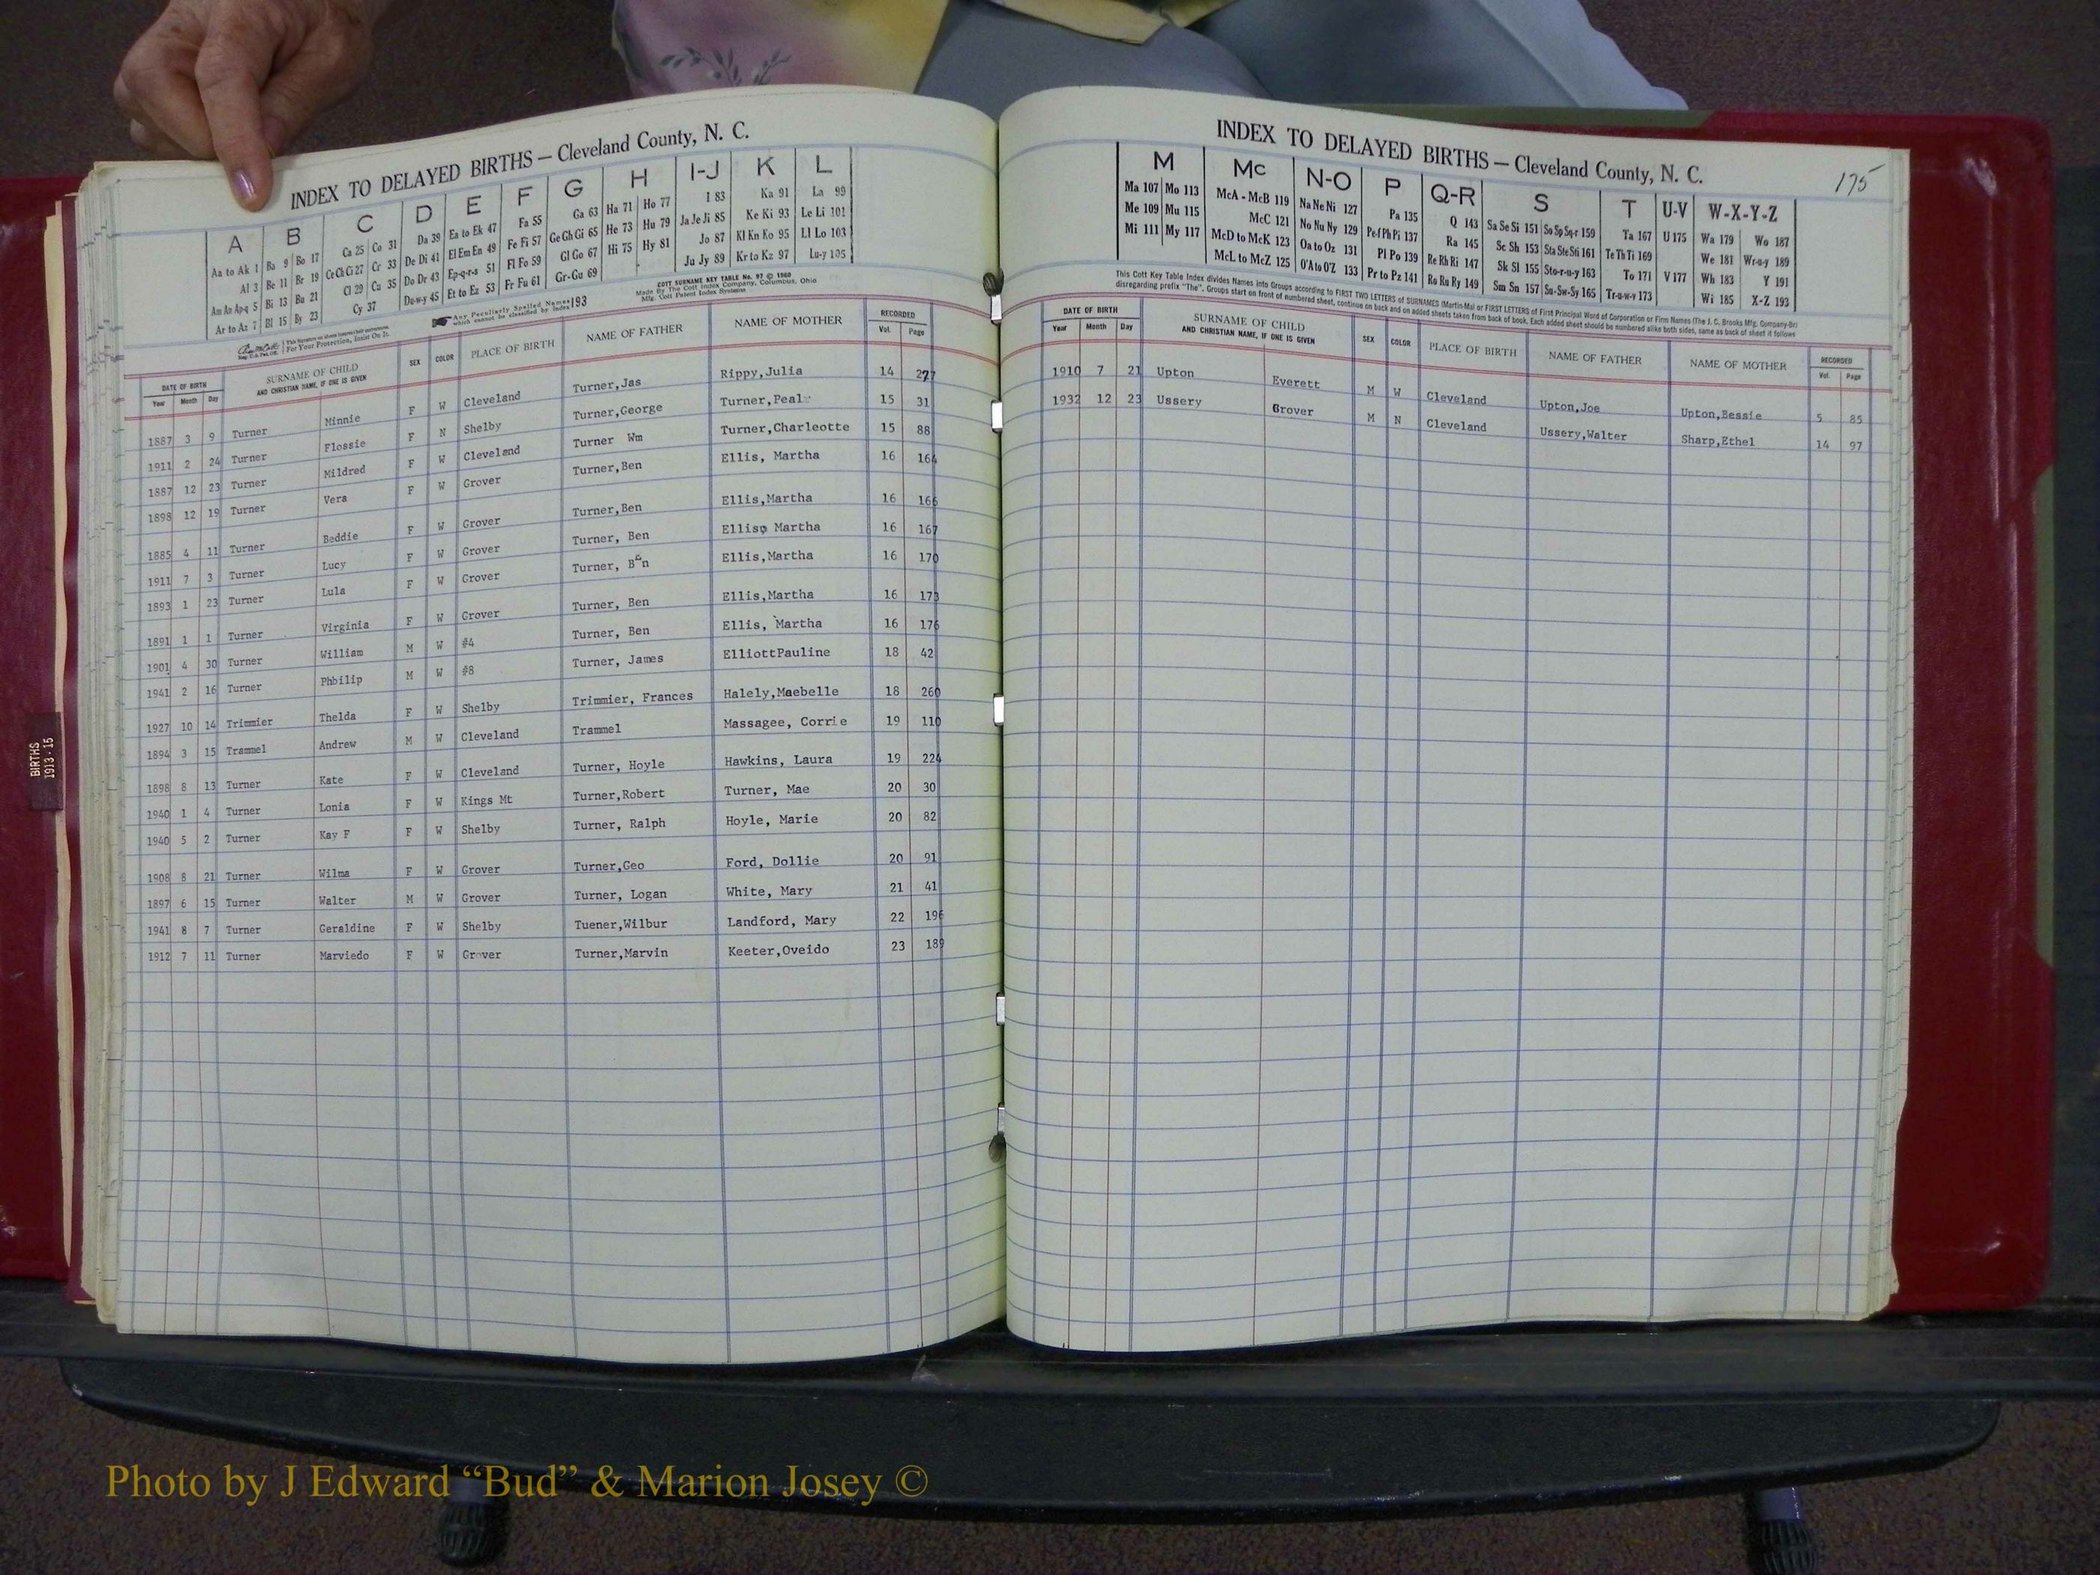 INDEX TO DELAYED BIRTHS — Cleveland County, N. C.
A B C D E F G H I-J K L
Aa to Ak 1 Ba 9 Bo 17 Ca 25 Co 31 Da 39 Ea to Ek 47 Fa 55 Ga 63 Ha 71 Ho 77 I 83 Ka 91 La 99
Al 3 Be 11 Br 19 Ce Ch Ci 27 Cr 33 De Di 41 El Em En 49 Fe Fi 57 Ge Gh Gi 65 He 73 Hu 79 Ja Je Ji 85 Ke Ki 93 Le Li 101
Am An Ap-q 5 Bi 13 Bu 21 Cl 29 Cu 35 Do Dr 43 Ep-q-r-s 51 Fl Fo 59 Gl Go 67 Hi 75 Hy 81 Jo 87 Kl Kn Ko 95 Ll Lo 103
Ar to Az 7 Bl 15 By 23 Cy 37 Du-w-y 45 Et to Ez 53 Fr Fu 61 Gr-Gu 69 Ju Jy 89 Kr to Kz 97 Lu-y 105
Any Peculiarly Spelled Names which cannot be classified by Index 193
COTT SURNAME KEY TABLE No. 97 © 1960
Made By The Cott Index Company, Columbus, Ohio
Mfg. Cott Patent Index Systems
For Your Protection, Insist On It.
DATE OF BIRTH SURNAME OF CHILD SEX COLOR PLACE OF BIRTH NAME OF FATHER NAME OF MOTHER RECORDED
Year Month Day AND CHRISTIAN NAME, IF ONE IS GIVEN Vol. Page
1887 3 9 Turner Minnie F W Cleveland Turner,Jas Rippy,Julia 14 277
1911 2 24 Turner Flossie F N Shelby Turner,George Turner,Pearl 15 31
1887 12 23 Turner Mildred F W Cleveland Turner Wm Turner,Charleotte 15 88
1898 12 19 Turner Vera F W Grover Turner,Ben Ellis, Martha 16 164
1885 4 11 Turner Beddie F W Grover Turner,Ben Ellis,Martha 16 166
1911 7 3 Turner Lucy F W Grover Turner, Ben Ellis, Martha 16 167
1893 1 23 Turner Lula F W Grover Turner, Ben Ellis,Martha 16 170
1891 1 1 Turner Virginia F W Grover Turner, Ben Ellis,Martha 16 173
1901 4 30 Turner William M W #4 Turner, Ben Ellis, Martha 16 176
1941 2 16 Turner Phbilip M W #8 Turner, James ElliottPauline 18 42
1927 10 14 Trimmier Thelda F W Shelby Trimmier, Frances Halely,Maebelle 18 260
1894 3 15 Trammel Andrew M W Cleveland Trammel Massagee, Corrie 19 110
1898 8 13 Turner Kate F W Cleveland Turner, Hoyle Hawkins, Laura 19 224
1940 1 4 Turner Lonia F W Kings Mt Turner,Robert Turner, Mae 20 30
1940 5 2 Turner Kay F F W Shelby Turner, Ralph Hoyle, Marie 20 82
1908 8 21 Turner Wilma F W Grover Turner,Geo Ford, Dollie 20 91
1897 6 15 Turner Walter M W Grover Turner, Logan White, Mary 21 41
1941 8 7 Turner Geraldine F W Shelby Tuener,Wilbur Landford, Mary 22 196
1912 7 11 Turner Marviedo F W Grover Turner,Marvin Keeter,Oveido 23 189
INDEX TO DELAYED BIRTHS — Cleveland County, N. C.
175
M Mc N-O P Q-R S T U-V W-X-Y-Z
Ma 107 Mo 113 McA - McB 119 Na Ne Ni 127 Pa 135 Q 143 Sa Se Si 151 So Sp Sq-r 159 Ta 167 U 175 Wa 179 Wo 187
Me 109 Mu 115 McC 121 No Nu Ny 129 Pe-f Ph Pi 137 Ra 145 Sc Sh 153 Sta Ste Sti 161 Te Th Ti 169 We 181 Wr-u-y 189
Mi 111 My 117 McD to McK 123 Oa to Oz 131 Pl Po 139 Re Rh Ri 147 Sk Sl 155 Sto-r-u-y 163 To 171 V 177 Wh 183 Y 191
McL to McZ 125 O'A to O'Z 133 Pr to Pz 141 Ro Ru Ry 149 Sm Sn 157 Su-Sw-Sy 165 Tr-u-w-y 173 Wi 185 X-Z 193
This Cott Key Table Index divides Names into Groups according to FIRST TWO LETTERS of SURNAMES (Martin-Ma) or FIRST LETTERS of First Principal Word of Corporation or Firm Names (The J. C. Brooks Mfg. Company-Br)
disregarding prefix "The". Groups start on front of numbered sheet, continue on back and on added sheets taken from back of book. Each added sheet should be numbered alike both sides, same as back of sheet it follows
DATE OF BIRTH SURNAME OF CHILD SEX COLOR PLACE OF BIRTH NAME OF FATHER NAME OF MOTHER RECORDED
Year Month Day AND CHRISTIAN NAME, IF ONE IS GIVEN Vol. Page
1910 7 21 Upton Everett M W Cleveland Upton,Joe Upton,Bessie 5 85
1932 12 23 Ussery Grover M N Cleveland Ussery,Walter Sharp,Ethel 14 97
BIRTHS
1913 - 15
Photo by J Edward “Bud” & Marion Josey ©